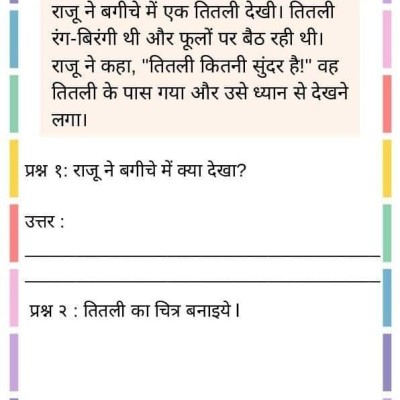 राजू ने बगीचे में एक तितली देखी। तितली
रंग-बिरंगी थी और फूलों पर बैठ रही थी।
राजू ने कहा, "तितली कितनी सुंदर है!" वह
तितली के पास गया और उसे ध्यान से देखने
लगा।
प्रश्न १: राजू ने बगीचे में क्या देखा?
उत्तर :
प्रश्न २ : तितली का चित्र बनाइये l